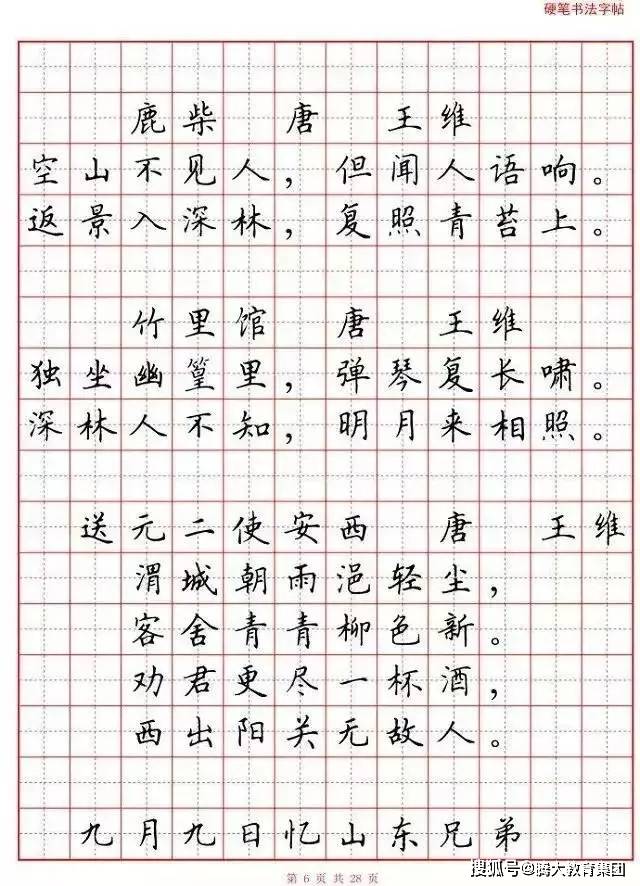 硬笔书法字帖
鹿柴 唐 王维
空山不见人，但闻人语响。
返景入深林，复照青苔上。
竹里馆 唐 王维
独坐幽篁里，弹琴复长啸。
深林人不知，明月来相照。
送元二使安西 唐 王维
渭城朝雨浥轻尘，
客舍青青柳色新。
劝君更尽一杯酒，
西出阳关无故人。
九月九日忆山东兄弟
第 6 页 共 28 页
搜狐号@腾大教育集团